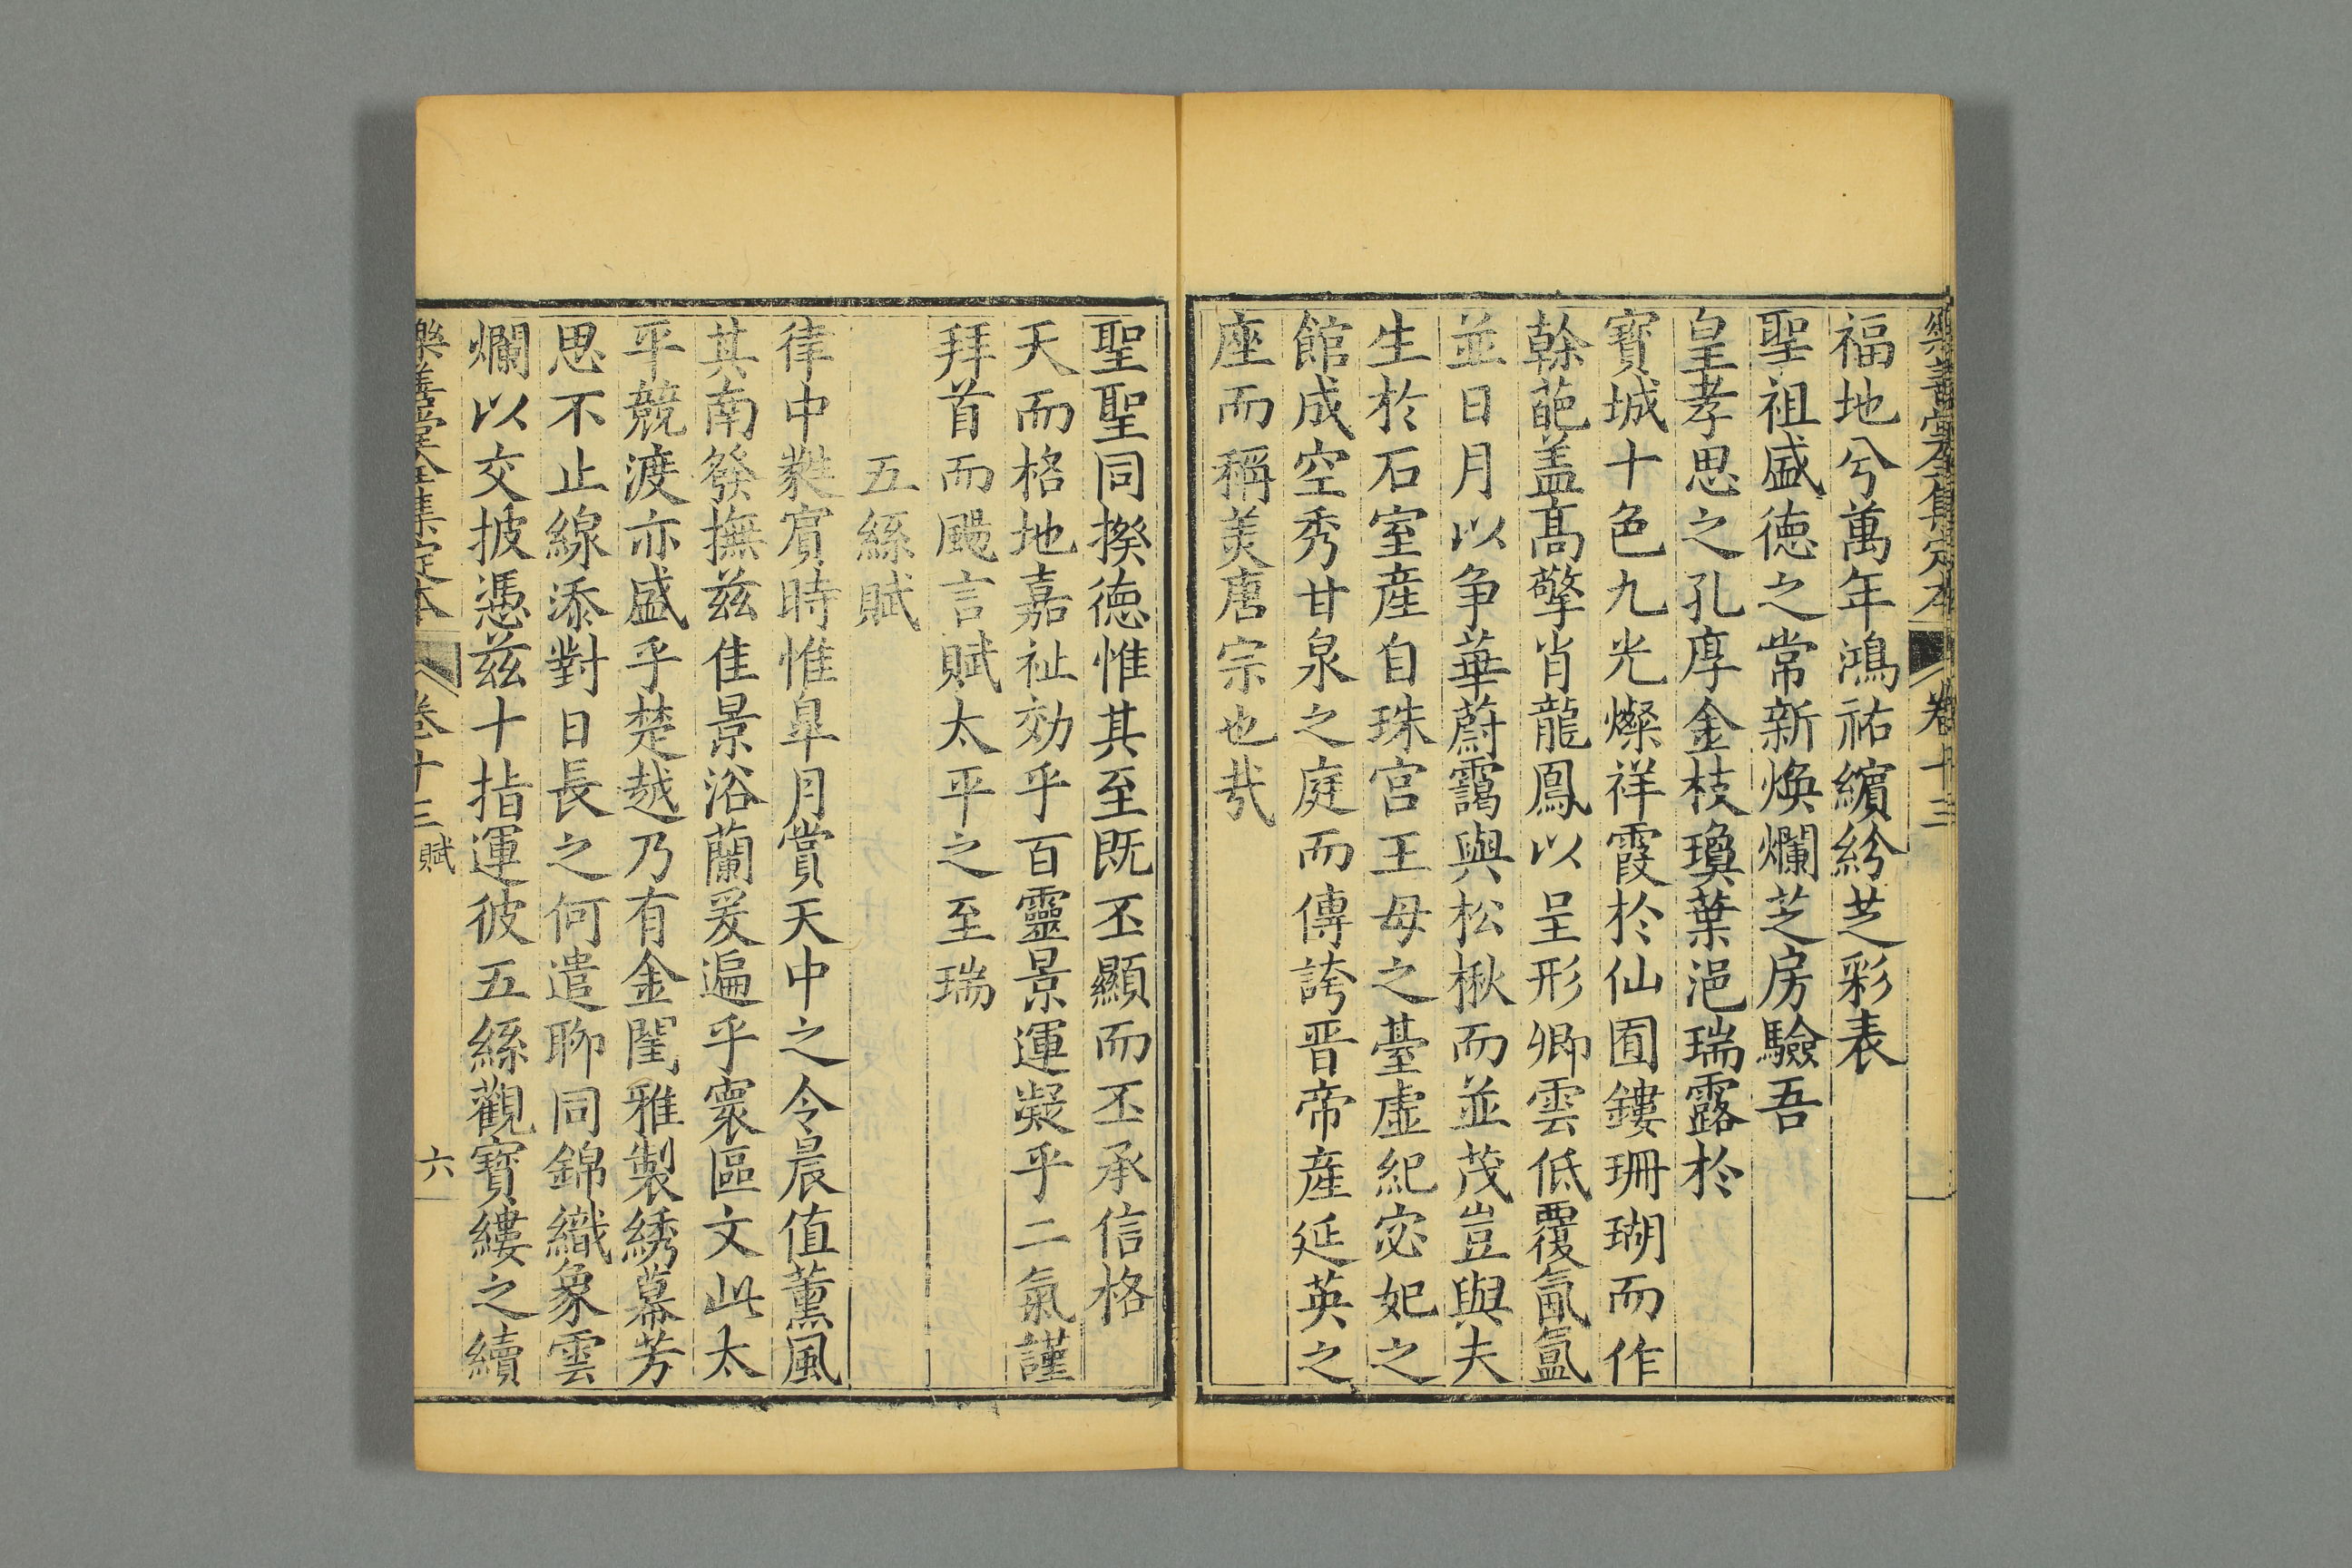 樂善堂全集定本 卷十三
福地兮萬年鴻祐繽紛芝彩表
聖祖盛徳之常新煥爛芝房驗吾
皇孝思之孔厚金枝瓊葉浥瑞露於
寳城十色九光燦祥霞於仙囿鏤珊瑚而作
榦葩盖髙擎肖龍鳳以呈形卿雲低覆氤氲
並日月以争華蔚靄與松楸而並茂豈與夫
生於石室産自珠宫王母之臺虚紀宓妃之
館成空秀甘泉之庭而傳誇晋帝産延英之
座而稱美唐宗也㢤
聖聖同揆徳惟其至既丕顯而丕承信格
天而格地嘉祉効乎百靈景運凝乎二氣謹
拜首而颺言賦太平之至瑞
五絲賦
律中蕤賔時惟臯月賞天中之令晨值薫風
其南發撫兹佳景浴蘭爰遍乎寰區文此太
平競渡亦盛乎楚越乃有金閨雅製綉幕芳
思不止線添對日長之何遣聊同錦織象雲
爛以交披憑兹十指運彼五絲觀寳縷之續
樂善堂全集定本 卷十三 賦 六